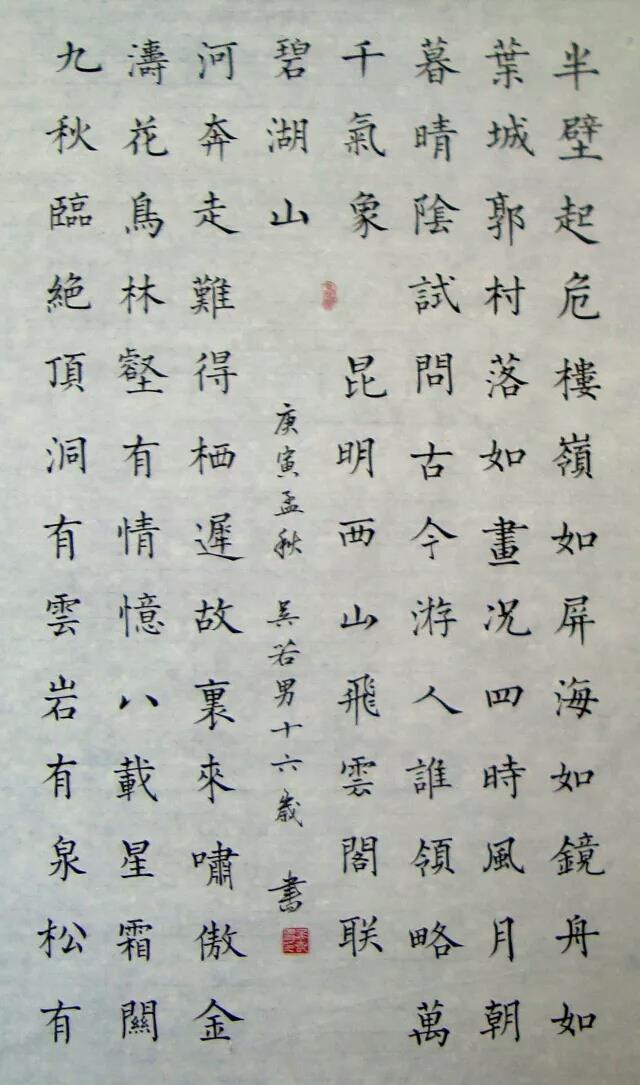 半壁起危樓嶺如屏海如鏡舟如
葉城郭村落如畫况四時風月朝
暮晴陰試問古今游人誰領略萬
千氣象 昆明西山飛雲閣联
九秋臨絶頂洞有雲岩有泉松有
濤花鳥林壑有情憶八載星霜關
河奔走難得栖遲故裏來嘯傲金
碧湖山 庚寅孟秋 吴若男十六歲 書